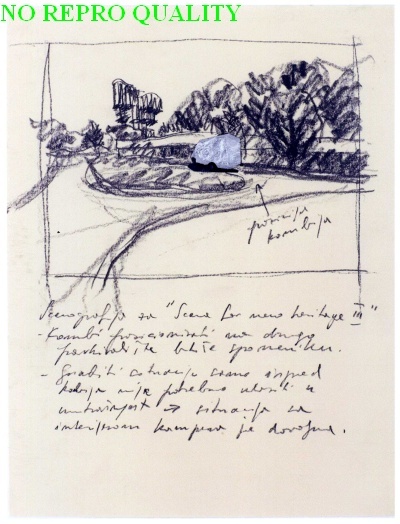 NO REPRO QUALITY
pozicija
kombija
Scenografija za "Scene for new heritage III"
- Kombi pozicionirati na drugo
parkiralište bliže spomeniku.
- Snimiti scene ispred
nije potrebno ulaziti u
unutrašnjost → situacija sa
interijerom kampera je dovoljna.